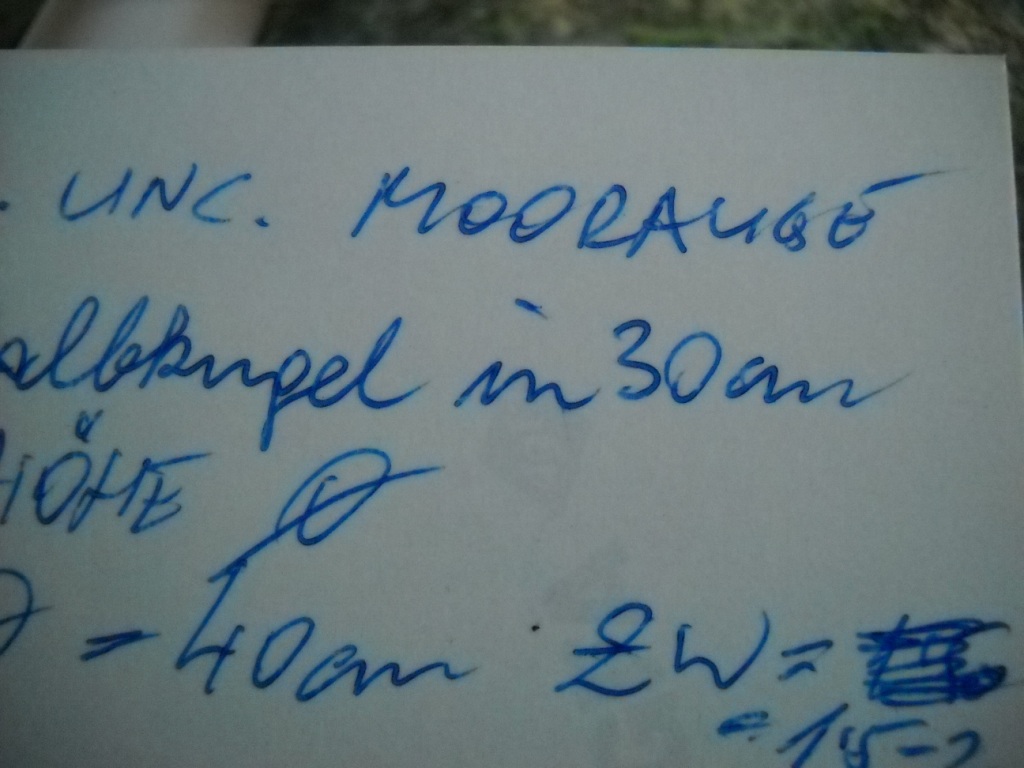 . UNC. MOORAUGE
albkugel in 30cm
HÖHE Ø
Ø = 40cm ZW =
= 15-